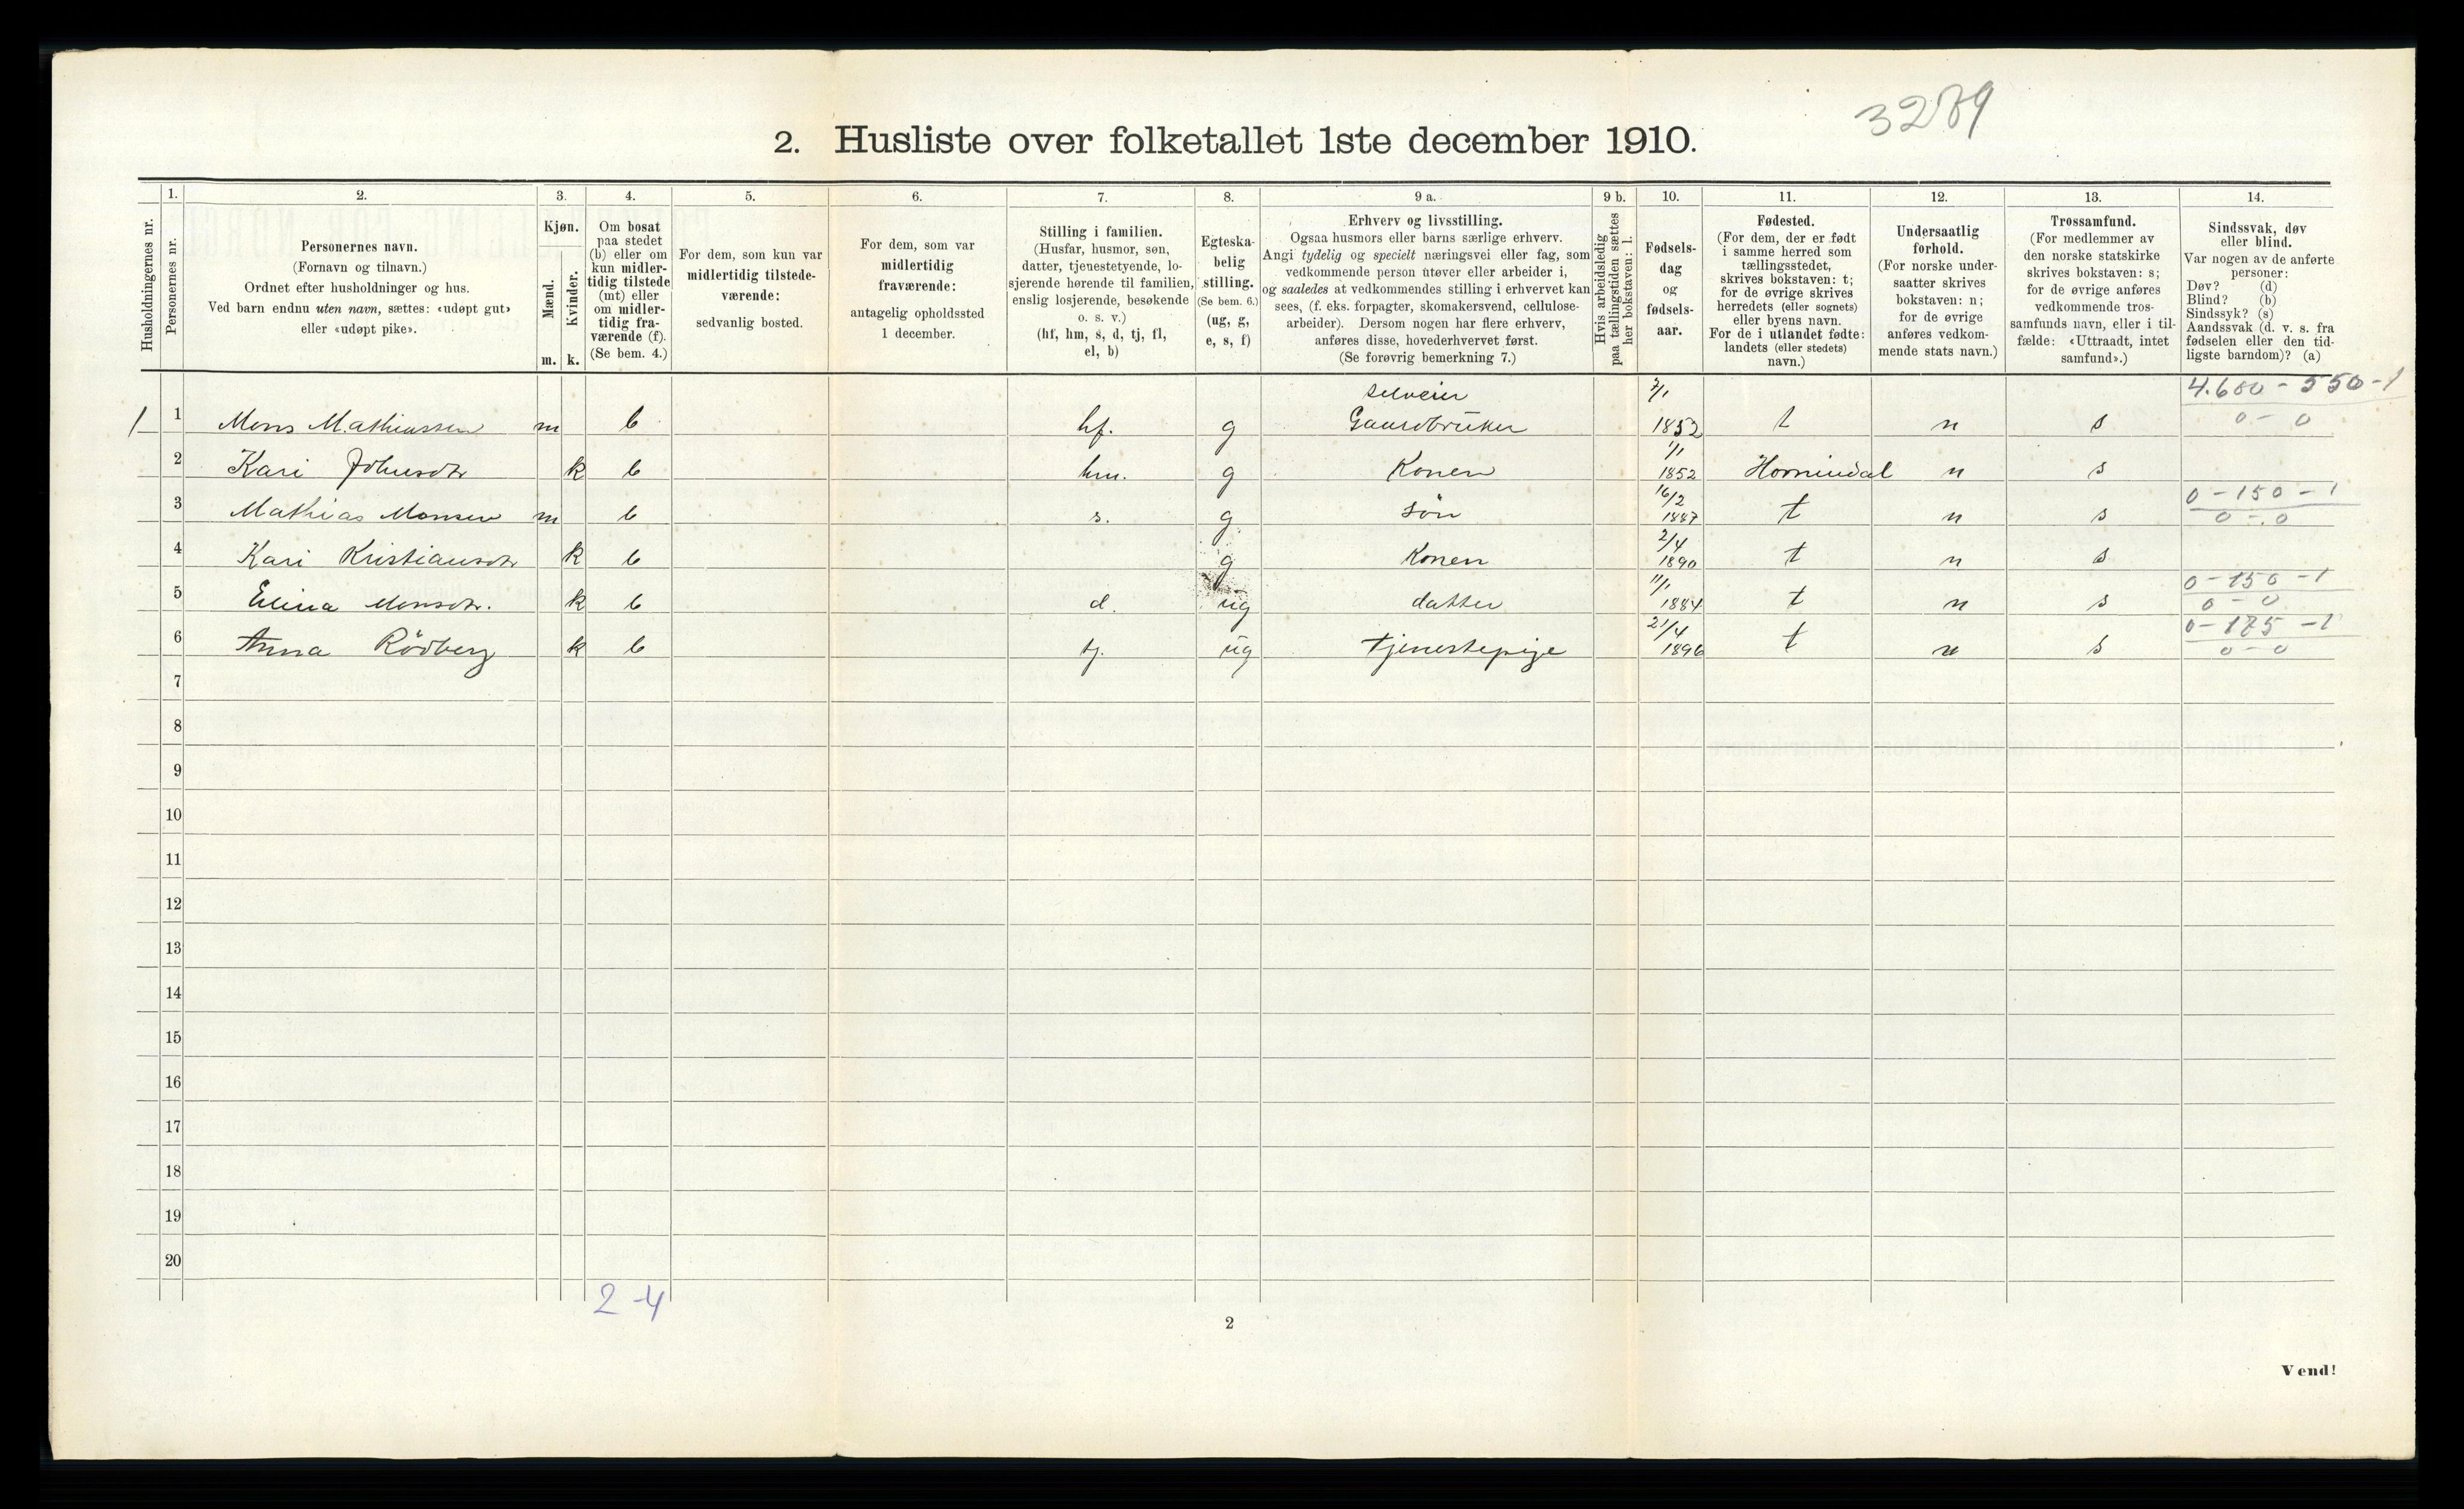 3289
2. Husliste over folketallet 1ste december 1910.
Husholdningernes nr.
1.
Personernes nr.
2.
Personernes navn.
(Fornavn og tilnavn.)
Ordnet efter husholdninger og hus.
Ved barn endnu uten navn, sættes: «udøpt gut»
eller «udøpt pike».
3.
Kjøn.
Mænd.
Kvinder.
m. k.
4.
Om bosat
paa stedet
(b) eller om
kun midler-
tidig tilstede
(mt) eller
om midler-
tidig fra-
værende (f).
(Se bem. 4.)
5.
For dem, som kun var
midlertidig tilstede-
værende:
sedvanlig bosted.
6.
For dem, som var
midlertidig
fraværende:
antagelig opholdssted
1 december.
7.
Stilling i familien.
(Husfar, husmor, søn,
datter, tjenestetyende, lo-
sjerende hørende til familien,
enslig losjerende, besøkende
o. s. v.)
(hf, hm, s, d, tj, fl,
el, b)
8.
Egteska-
belig
stilling.
(Se bem. 6.)
(ug, g,
e, s, f)
9 a.
Erhverv og livsstilling.
Ogsaa husmors eller barns særlige erhverv.
Angi tydelig og specielt næringsvei eller fag, som
vedkommende person utøver eller arbeider i,
og saaledes at vedkommendes stilling i erhvervet kan
sees, (f. eks. forpagter, skomakersvend, cellulose-
arbeider). Dersom nogen har flere erhverv,
anføres disse, hovederhvervet først.
(Se forøvrig bemerkning 7.)
9 b.
Hvis arbeidsledig
paa tællingstiden sættes
her bokstaven: l.
10.
Fødsels-
dag
og
fødsels-
aar.
11.
Fødested.
(For dem, der er født
i samme herred som
tællingsstedet,
skrives bokstaven: t;
for de øvrige skrives
herredets (eller sognets)
eller byens navn.
For de i utlandet fødte:
landets (eller stedets)
navn.)
12.
Undersaatlig
forhold.
(For norske under-
saatter skrives
bokstaven: n;
for de øvrige
anføres vedkom-
mende stats navn.)
13.
Trossamfund.
(For medlemmer av
den norske statskirke
skrives bokstaven: s;
for de øvrige anføres
vedkommende tros-
samfunds navn, eller i til-
fælde: «Uttraadt, intet
samfund».)
14.
Sindssvak, døv
eller blind.
Var nogen av de anførte
personer:
Døv? (d)
Blind? (b)
Sindssyk? (s)
Aandssvak (d. v. s. fra
fødselen eller den tid-
ligste barndom)? (a)
selveier 4.600 - 550 - 1
1 1 Mons Mathiassen m b hf. g Gaardbruker 1852 t n s 0 - 0
1/1
2 Kari Johnsdtr k b hm. g Konen 1852 Hornindal n s
16/2 0 - 150 - 1
3 Mathias Monsen m b s. g søn 1887 t n s 0 - 0
2/4
4 Kari Kristiansdtr k b g Konen 1890 t n s
11/1 0 - 150 - 1
5 Elina Monsdtr. k b d. ug datter 1884 t n s 0 - 0
21/4 0 - 175 - 1
6 Anna Rödberg k b tj. ug tjenestepige 1896 t n s 0 - 0
7
8
9
10
11
12
13
14
15
16
17
18
19
20
2 - 4
2
Vend!